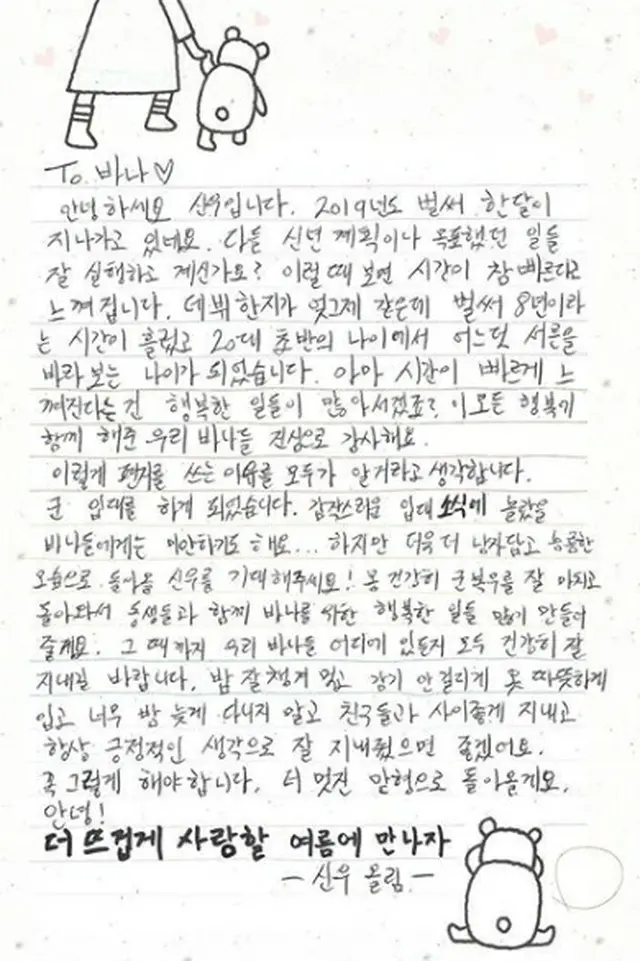 To. 바나♡
안녕하세요 산우입니다. 2019년도 벌써 한달이
지나가고 있네요. 다들 신년 계획이나 목표했던 일들
잘 실행하고 계신가요? 이럴 때 보면 시간이 참 빠르다고
느껴집니다. 데뷔한지가 엊그제 같은데 벌써 8년이라
는 시간이 흘렀고 20대 초반의 나이에서 어느덧 서른을
바라보는 나이가 되었습니다. 아마 시간이 빠르게 느
껴진다는건 행복한 일들이 많아서겠죠? 이 모든 행복기
함께 해준 우리 바나들 진심으로 감사해요.
이렇게 편지를 쓰는 이유를 모두가 알거라고 생각합니다.
군 입대를 하게 되었습니다. 갑작스러운 입대 소식에 놀랐을
바나들에게는 미안하기도 해요... 하지만 더욱 더 남자답고 늠름한
모습으로 돌아올 신우를 기대해주세요! 몸 건강히 군복무를 잘 마치고
돌아와서 동생들과 함께 바나를 위한 행복한 일들 많이 만들어
줄게요. 그 때까지 우리 바나들 어디에 있든지 모두 건강히 잘
지내길 바랍니다. 밥 잘챙겨 먹고 감기 안걸리게 옷 따뜻하게
입고 너무 밤 늦게 다니지 말고 친구들과 사이좋게 지내고
항상 긍정적인 생각으로 잘 지내줬으면 좋겠어요.
꼭 그렇게 해야합니다. 더 멋진 맏형으로 돌아올게요.
안녕!
더 뜨겁게 사랑할 여름에 만나자
- 신우 올림 -